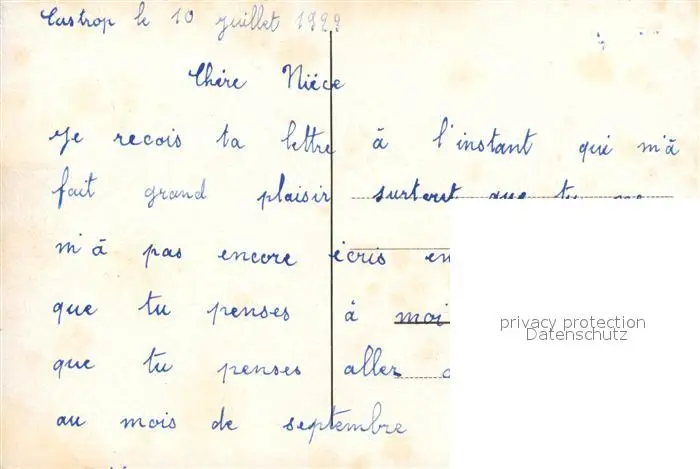 Castrop le 10 juillet 1929
Chère Niéce
Je recois ta lettre à l'instant qui m'à
fait grand plaisir surtout que tu ne
m'à pas encore écris en
que tu penses à moi
que tu penses aller
au mois de septembre
privacy protection
Datenschutz